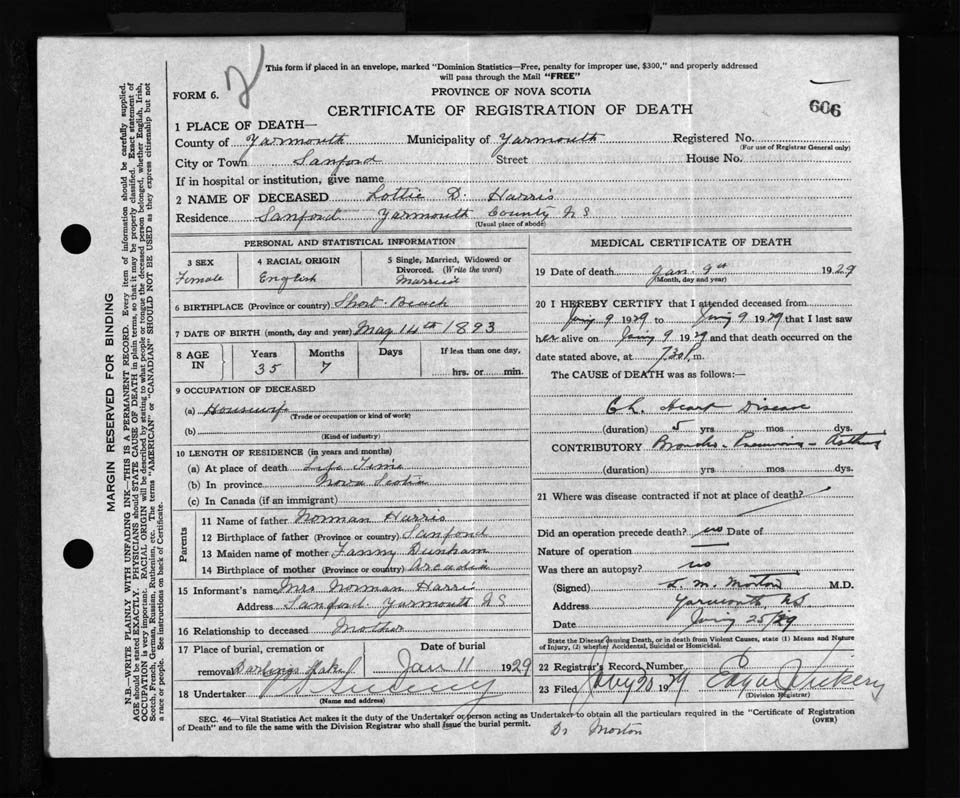 This form if placed in an envelope, marked "Dominion Statistics—Free, penalty for improper use, $300," and properly addressed
will pass through the Mail "FREE"
FORM 6. 2
PROVINCE OF NOVA SCOTIA
CERTIFICATE OF REGISTRATION OF DEATH
606
1 PLACE OF DEATH—
County of Yarmouth Municipality of Yarmouth Registered No.
(For use of Registrar General only)
City or Town Sanford Street House No.
If in hospital or institution, give name
2 NAME OF DECEASED Lottie D. Harris
Residence Sanford Yarmouth County N S
(Usual place of abode)
PERSONAL AND STATISTICAL INFORMATION
3 SEX Female
4 RACIAL ORIGIN English
5 Single, Married, Widowed or Divorced. (Write the word) Married
6 BIRTHPLACE (Province or country) Short Beach
7 DATE OF BIRTH (month, day and year) May 14th 1893
8 AGE IN Years 35 Months 7 Days If less than one day, hrs. or min.
9 OCCUPATION OF DECEASED
(a) Housewife
(Trade or occupation or kind of work)
(b)
(Kind of industry)
10 LENGTH OF RESIDENCE (in years and months)
(a) At place of death Life Time
(b) In province Nova Scotia
(c) In Canada (if an immigrant)
Parents
11 Name of father Norman Harris
12 Birthplace of father (Province or country) Sanford
13 Maiden name of mother Fanny Dunham
14 Birthplace of mother (Province or country) Arcadia
15 Informant's name Mrs Norman Harris
Address Sanford Yarmouth N S
16 Relationship to deceased Mother
17 Place of burial, cremation or removal Darlings
Date of burial Jan 11 1929
18 Undertaker
(Name and address)
MEDICAL CERTIFICATE OF DEATH
19 Date of death Jan. 9th 1929
(Month, day and year)
20 I HEREBY CERTIFY that I attended deceased from
9 1929 to 9 1929 that I last saw
her alive on 9 1929 and that death occurred on the
date stated above, at 730 P.m.
The CAUSE of DEATH was as follows:—
Ch. Heart Disease
(duration) 5 yrs mos dys.
CONTRIBUTORY Broncho-Pneumonia - Asthma
(duration) yrs mos dys.
21 Where was disease contracted if not at place of death?
Did an operation precede death? no Date of
Nature of operation
Was there an autopsy? no
(Signed) L. M. Morton M.D.
Address Yarmouth, NS
Date 25/29
State the Disease causing Death, or in death from Violent Causes, state (1) Means and Nature of Injury, (2) whether Accidental, Suicidal or Homicidal.
22 Registrar's Record Number
23 Filed 1929
(Division Registrar)
SEC. 46—Vital Statistics Act makes it the duty of the Undertaker or person acting as Undertaker to obtain all the particulars required in the "Certificate of Registration
of Death" and to file the same with the Division Registrar who shall issue the burial permit.
(OVER)
Dr Morton
MARGIN RESERVED FOR BINDING
N.B.—WRITE PLAINLY WITH UNFADING INK—THIS IS A PERMANENT RECORD. Every item of information should be carefully supplied.
AGE should be stated EXACTLY. PHYSICIANS should STATE CAUSE OF DEATH in plain terms, so that it may be properly classified. Exact statement of
OCCUPATION is very important. RACIAL ORIGIN will be described by stating to what people or tongue the deceased person belonged, whether English, Irish,
Scotch, French, German, Russian, Ruthenian, etc. The terms "AMERICAN" or "CANADIAN" SHOULD NOT BE USED as they express citizenship but not
a race or people. See instructions on back of Certificate.